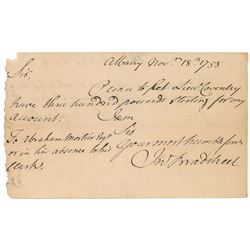 Albany Nov.r 18.th 1758
Sir.
Please to let Lieu.t Coventry
have three hundred pounds sterling for my
account. I am
Sir
To Abraham Mortier Esq.r Your most humble Ser.t
or in his absence to his
Clerk. Jn.o Bradstreet